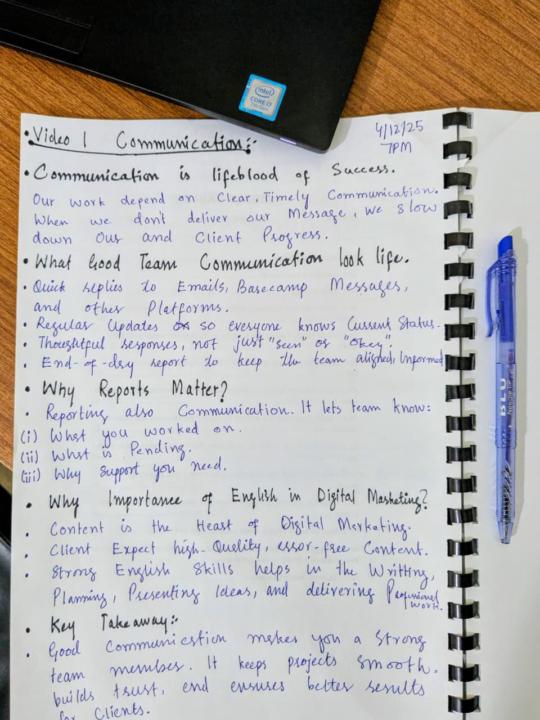 intel
CORE i7
4/12/25
7PM
• Video 1 Communication:-
• Communication is lifeblood of Success.
Our work depend on Clear, Timely Communication.
When we don't deliver our Message, we slow
down Our and Client Progress.
• What Good Team Communication look life.
• Quick replies to Emails, Basecamp Messages,
and other Platforms.
• Regular Updates so everyone knows Current Status.
• Thoughtful responses, not just "seen" or "Okey".
• End-of-day report to keep the team aligned, Informed
• Why Reports Matter?
• Reporting also Communication. It lets team know:
(i) What you worked on.
(ii) What is Pending.
(iii) Why Support you need.
• Why Importance of English in Digital Marketing?
• Content is the Heart of Digital Marketing.
• Client Expect high-Quality, error-free Content.
• Strong English Skills helps in the Writting,
Planning, Presenting Ideas, and delivering Professional
work.
• Key Takeaway:-
• Good Communication makes you a Strong
team member. It keeps projects Smooth.
builds trust, and ensures better results
for Clients.
BLU